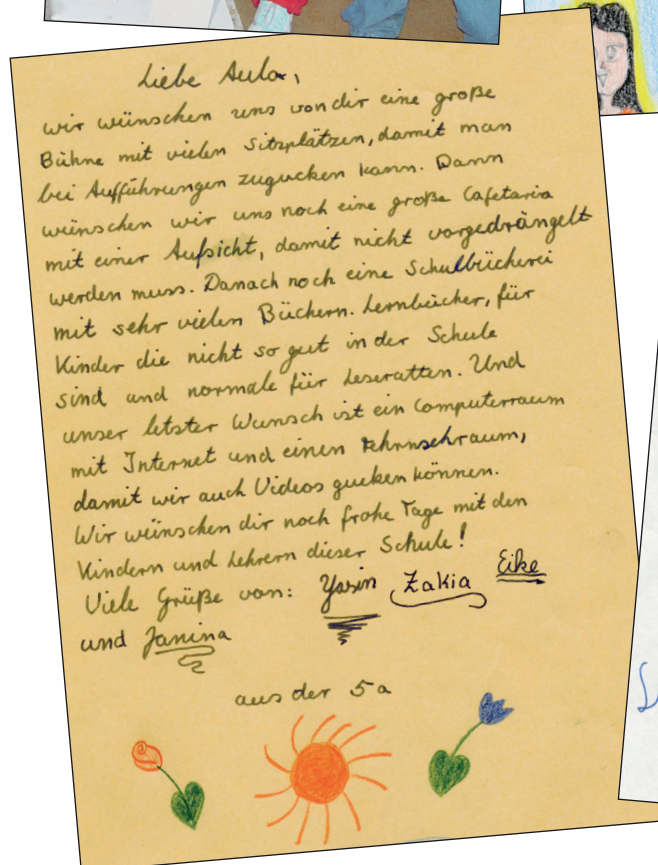 Liebe Aula,
wir wünschen uns von dir eine große
Bühne mit vielen Sitzplätzen, damit man
bei Aufführungen zugucken kann. Dann
wünschen wir uns noch eine große Cafetaria
mit einer Aufsicht, damit nicht vorgedrängelt
werden muss. Danach noch eine Schulbücherei
mit sehr vielen Büchern. Lernbücher, für
Kinder die nicht so gut in der Schule
sind und normale für Leseratten. Und
unser letzter Wunsch ist ein Computerraum
mit Internet und einen Fehrnsehraum,
damit wir auch Videos gucken können.
Wir wünschen dir noch frohe Tage mit den
Kindern und Lehrern dieser Schule!
Viele Grüße von: Yasin Zakia Eike
und Janina
aus der 5a